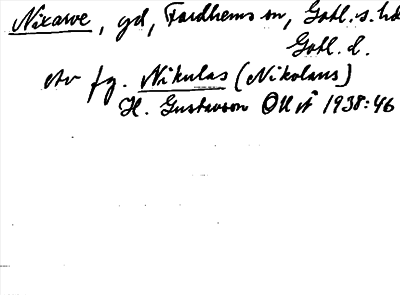 Nixarve, gd, Fardhems sn, Gotl. s. hd
Gotl. l.
Av fg. Nikulas (Nikolaus)
H. Gustavson OUÅ 1938:46